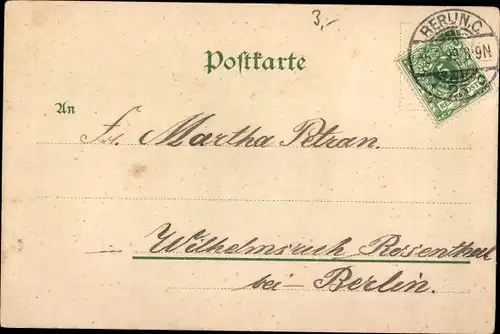 3,-
BERLIN.C.
Postkarte
An
Frl. Martha Petran.
Wilhelmsruh Rosenthal
bei Berlin.